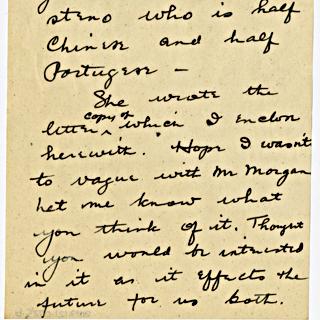 steno who is half
Chinese and half
Portugese —
She wrote the
copy of
letter which I enclose
herewith. Hope I wasn't
to vague with Mr Morgan
Let me know what
you think of it. Thought
you would be interested
in it as it effects the
future for us both.